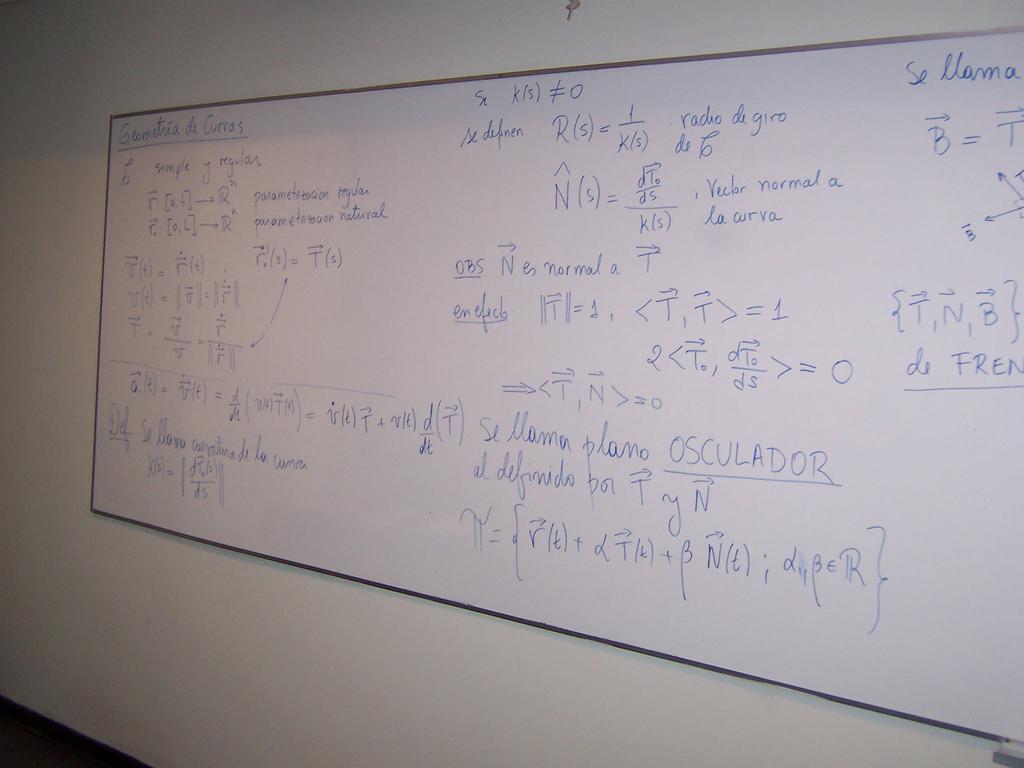 Geometria de Curvas
ζ simple y regular
r⃗ [a,b] → ℝⁿ parametrizacion regular
r⃗₀ [0,L] → ℝⁿ parametrizacion natural
v⃗(t) = ṙ⃗(t) ;
r⃗₀'(s) = T⃗(s)
v(t) = ‖v⃗‖ = ‖ṙ⃗‖
T⃗ = v⃗/v = ṙ⃗/‖ṙ⃗‖
a⃗(t) = v̇⃗(t) = d/dt (v(t) T⃗(t)) = v̇(t) T⃗ + v(t) d/dt (T⃗)
Def Se llama curvatura de la curva
K(s) = ‖dT⃗₀(s)/ds‖
Si K(s) ≠ 0
se definen R(s) = 1/K(s) : radio de giro
de ζ
N̂(s) = (dT⃗₀/ds)/K(s) ; Vector normal a
la curva
OBS N⃗ es normal a T⃗
en efecto ‖T⃗‖ = 1 ; <T⃗, T⃗> = 1
2 <T⃗₀, dT⃗₀/ds> = 0
⟹ <T⃗, N⃗> = 0
Se llama plano OSCULADOR
al definido por T⃗ y N⃗
π = {r⃗(t) + α T⃗(t) + β N⃗(t) ; α, β ∈ ℝ}
Se llama
B⃗ = T⃗
B⃗
{T⃗, N⃗, B⃗}
de FREN